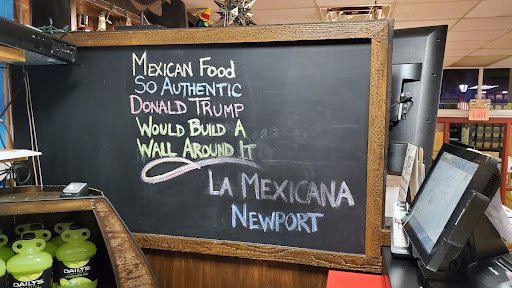 Mexican Food
So Authentic
Donald Trump
Would Build A
Wall Around It
La Mexicana
Newport
EXIT
DAILY'S